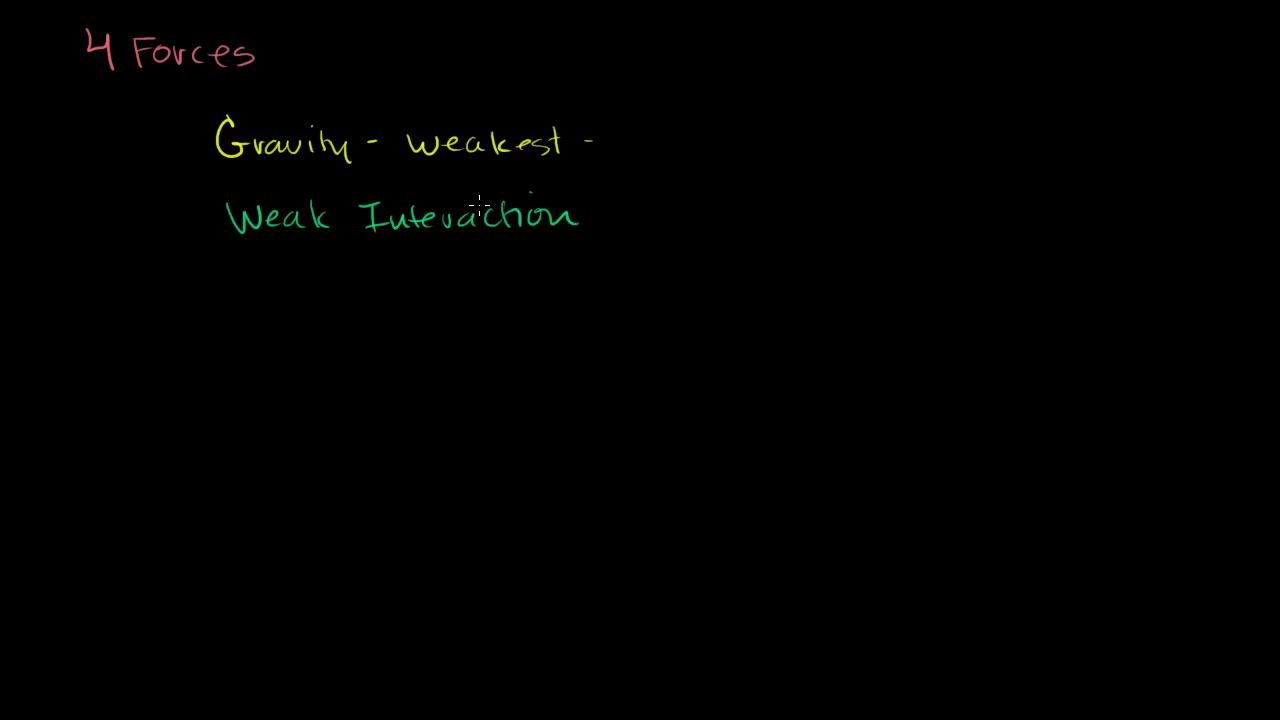 4 Forces
Gravity - weakest -
Weak Interaction